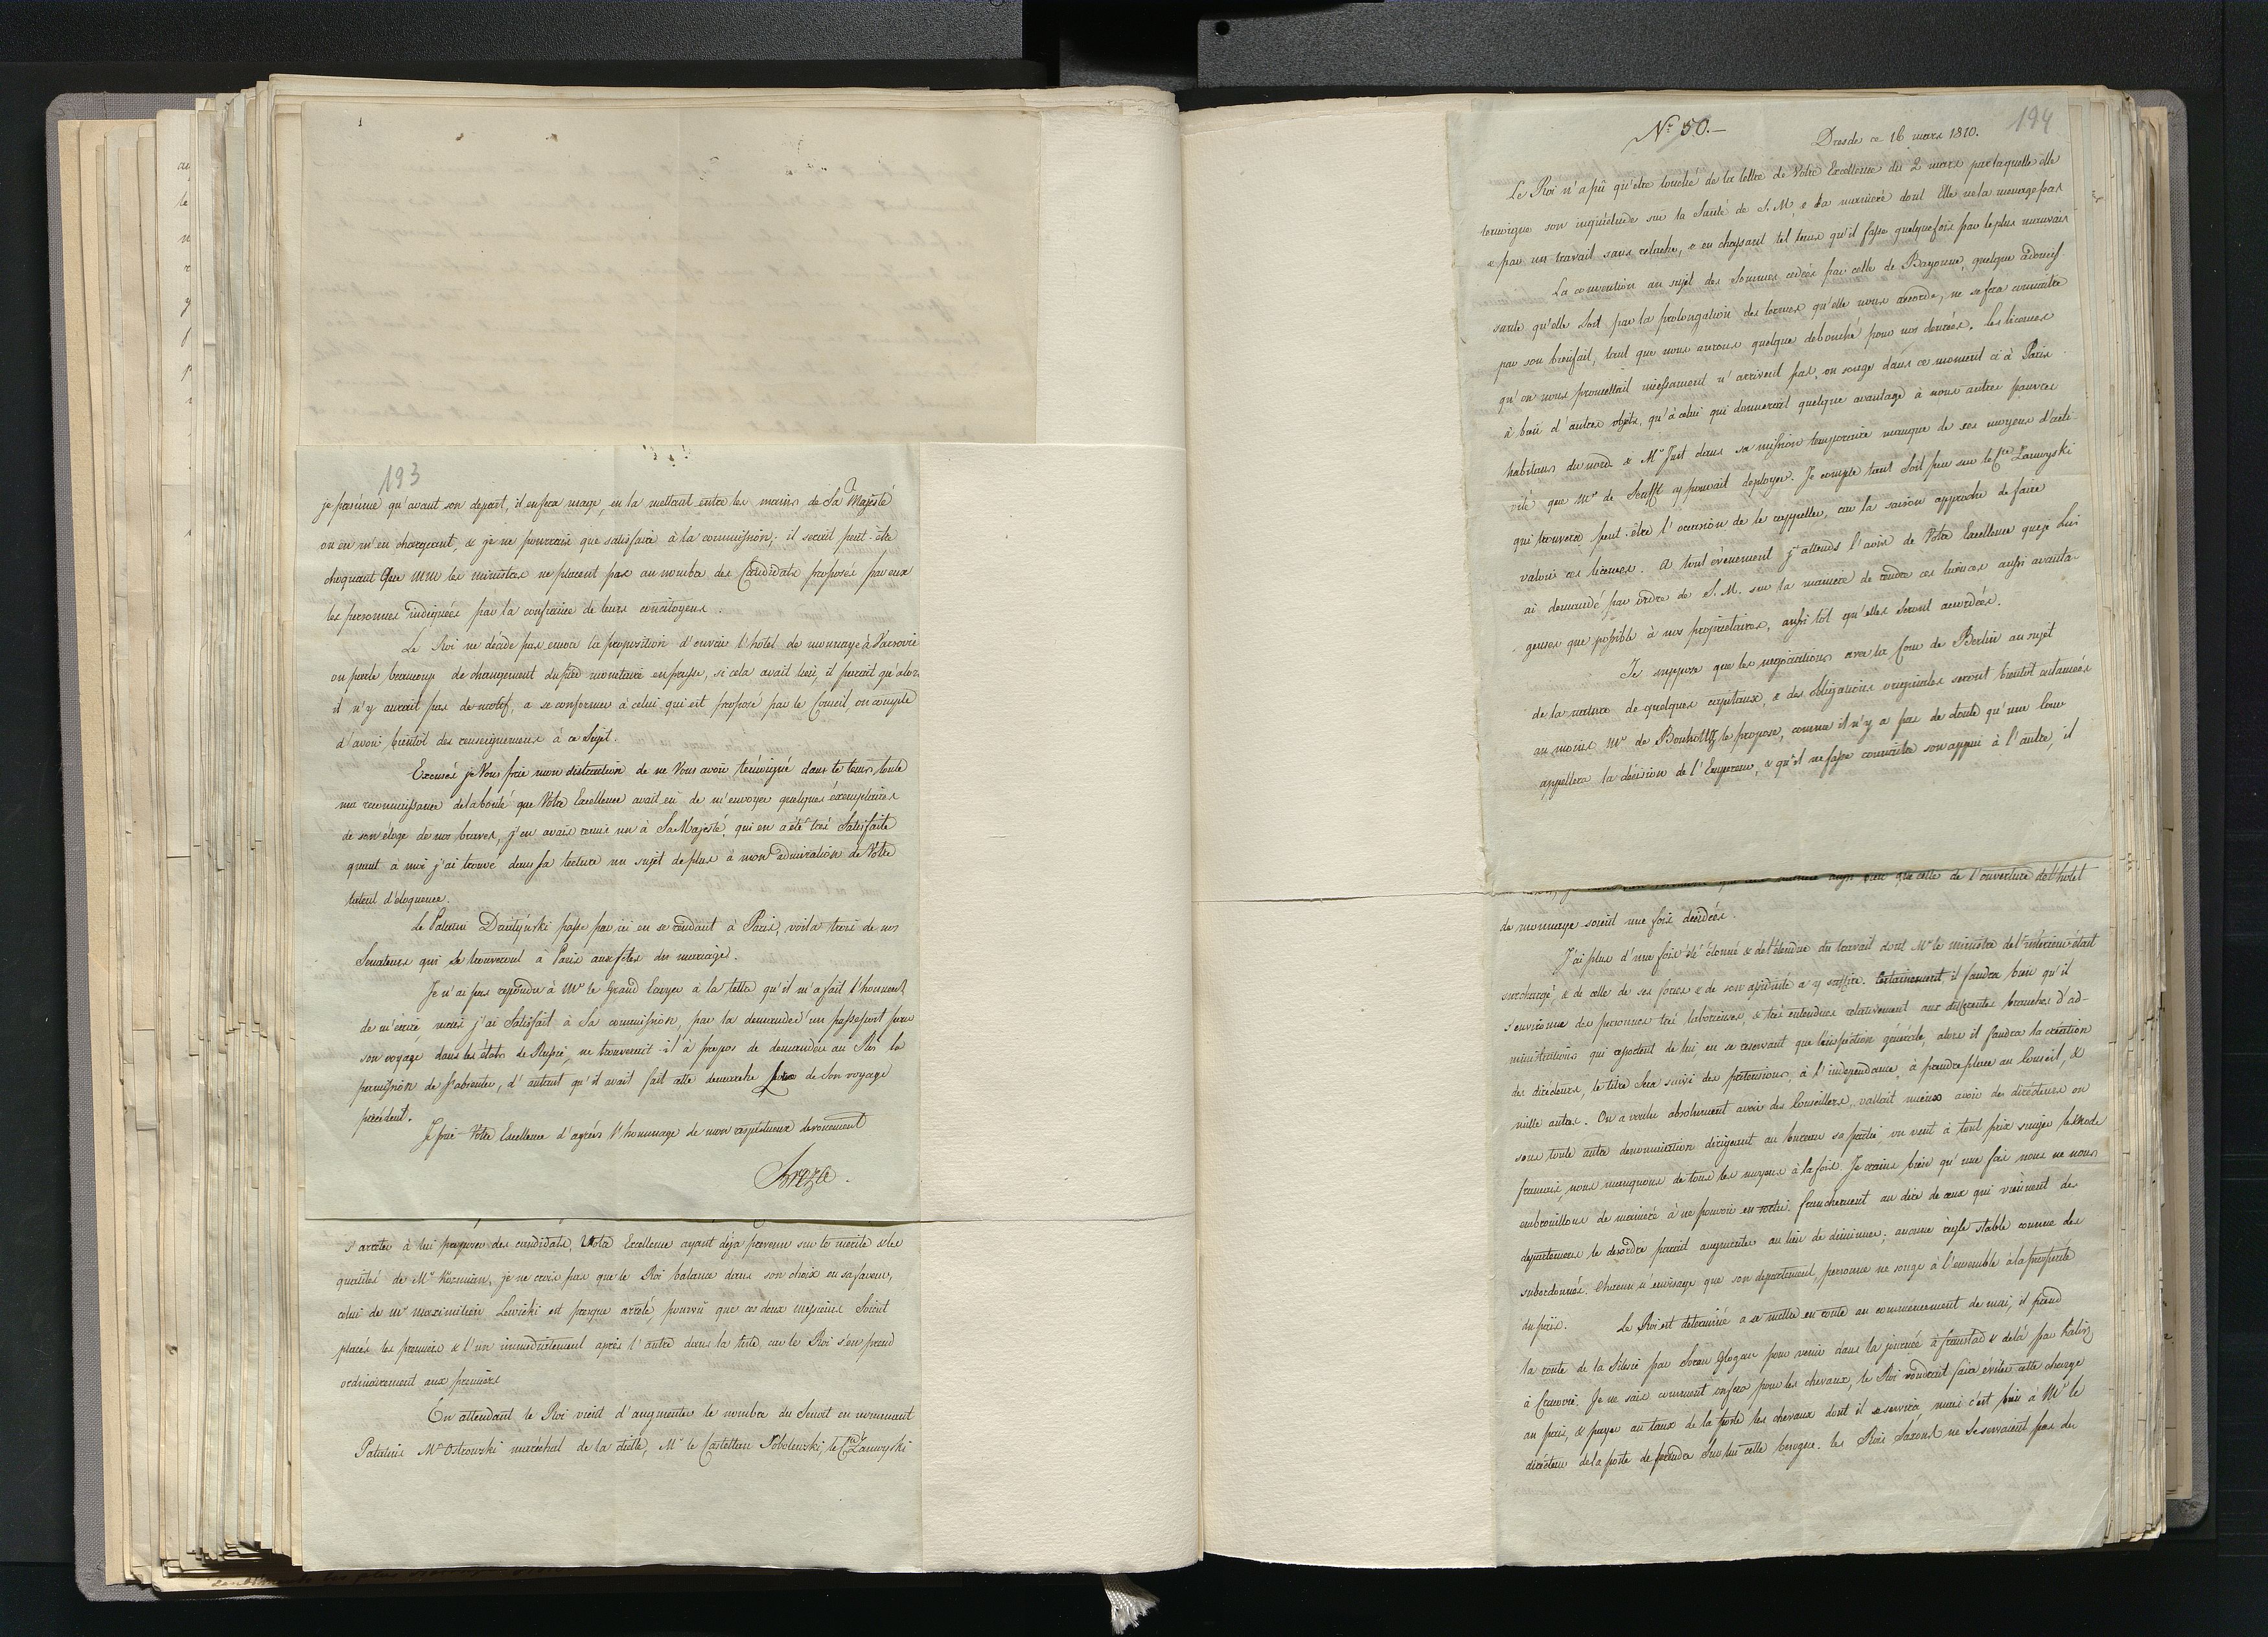 193
je présume qu'avant son depart, il en fera usage, en la mettant entre les mains de Sa Majesté
ou en m'en chargeant, & je ne pourrais que satisfaire à la commission; il serait peut-être
choquant que MM les ministres ne placent pas au nombre des Candidats proposés par eux
les personnes indiquées par la confiance de leurs concitoyens.
Le Roi ne décide pas encore la proposition d'ouvrir l'hôtel de monnaye à Varsovie
on parle beaucoup de changement du pied monétaire en prusse, si cela avait lieu, il parait qu'alors
il n'y aurait pas de motif, a se conformer à celui qui est proposé par le Conseil, on compte
d'avoir bientôt des renseignemens à ce Sujet.
Excusés je Vous prie mon distraction de ne Vous avoir temoigné dans le tems toute
ma reconnaissance de la bonté que Votre Excellence avait eû de m'envoyer quelques éxemplaires
de son éloge de nos braves, j'en avais remis un à Sa Majesté, qui en a été très Satisfaite
quant à moi j'ai trouvé dans sa lecture un sujet de plus à mon admiration de Votre
talent d'éloquence.
Le Palatin Dzialyński passe par ici en se rendant à Paris, voila trois de nos
Senateurs qui se trouveront à Paris aux fêtes du mariage.
Je n'ai pas repondu à Mr le Grand Ecuyer à la lettre qu'il m'a fait l'honneur
de m'écrire, mais j'ai Satisfait à Sa commission, par la demande d'un passeport pour
son voyage dans les états de Russie, ne trouverait-il à propos de demander au Roi la
permission de s'absenter, d'autant qu'il avait fait cette demarche lors de son voyage
précédent.
Je prie Votre Excellence d'agréer l'hommage de mon respectueux devouement
Breza.
s'arreter à lui proposer des candidats, Votre Excellence ayant déja prevenu sur le merite & les
qualités de Mr Kozmian, je ne crois pas que le Roi balance dans son choix en sa faveur,
celui de Mr Maximilien Lewicki est presque arrêté, pourvû que ces deux messieurs Soient
placés les premiers & l'un immediatement après l'autre dans la liste car le Roi s'en prend
ordinairement aux premiers
En attendant le Roi vient d'augmenter le nombre du Senat en nommant
Palatins Mr Ostrowski maréchal de la diette, Mr le Castellan Sobolewski, le Cte Zamoyski
Nr 50.–
194
Dresde ce 16 mars 1810.
Le Roi n'a pû qu'etre touché de la lettre de Votre Excellence du 2 mars par laquelle elle
temoigne son inquiétude sur la Santé de S. M. & la manière dont Elle ne la menage pas
& par un travail sans relache, & en chassant tel tems qu'il fasse quelquefois par le plus mauvais
La convention au sujet des Sommes cedées par celle de Bayonne, quelque adoucis
sante qu'elle soit par la prolongation des termes qu'elle nous accorde, ne se fera connaitre
par son bienfait, tant que nous aurons quelque debouché pour nos denrées. Les licences
qu'on nous promettait incessament n'arrivent pas, on songe dans ce moment ci à Paris
à bien d'autres objets, qu'à celui qui donnerait quelque avantage à nous autres pauvres
habitans du nord. & Mr Just dans sa mission temporaire manque de ses moyens d'acti
vité que Mr de Senfft y pouvait deployer. Je compte tant soit peu sur le Cte Zamoyski
qui trouvera peut-être l'occasion de le rappeller, car la saison approche de faire
valoir ces licences. A tout evenement j'attends l'avis de Votre Excellence que je Lui
ai demandé par ordre de S. M. sur la maniere de rendre ces licences aussi avanta-
geuses que possible à nos proprietaires, aussi tôt qu'elles seront accordées.
Je suppose que les negociations avec la Cour de Berlin au sujet
de la nature de quelques capitaux, & des obligations originales seront bientot entamées
au moins Mr de Bonholtz le propose, comme il n'y a pas de doute qu'une Cour
appellera la décision de l'Empereur, & qu'il ne fasse connaitre son appui à l'autre, il
aussi bien que celle de l'ouverture de l'hotel
de monnaye soient une fois decidées.
J'ai plus d'une fois été étonné & de l'étendue du travail dont Mr le ministre de l'interieur était
surchargé, & de celle de ses forces & de son assiduité a y suffire. Certainement il faudra bien qu'il
s'environne des personnes très laborieuses, & très entendues relativement aux differentes branches d'ad-
ministrations qui repectent de lui, en se reservant que l'inspection générale, alors il faudra la création
des directeurs, le titre sera suivi des pretensions, à l'independance, à prendre place au Conseil, &
mille autres. On a voulu absolument avoir des Conseillers, vallait mieux avoir des directeurs ou
sous toute autre denomination dirigeant au bureau sa partie, on veut à tout prix singer le mode
français, nous manquons de tous les moyens à la fois. Je crains bien qu'une fois nous ne nous
embrouillons de maniere à ne pouvoir en sortir. franchement au dire de ceux qui viennent de
departemens le desordre parait augmenter au lieu de diminuer; aucune règle stable connue des
subordonnés. Chacun n'envisage que son departement, personne ne songe à l'ensemble à la prosperité
du païs.
Le Roi est determiné a se mettre en route au commencement de mai, il prend
la route de la Silesie par Sorau Glogau pour venir dans la journée à fraustad & delà par Kalisz
à Cracovie. Je ne sais comment on fera pour les chevaux, le Roi voudrait faire éviter cette charge
au païs, & payer au taux de la poste les chevaux dont il se servira, mais c'est bien à Mr le
directeur de la poste de prendre sur lui cette besogne. les Rois Saxons ne se servaient pas de